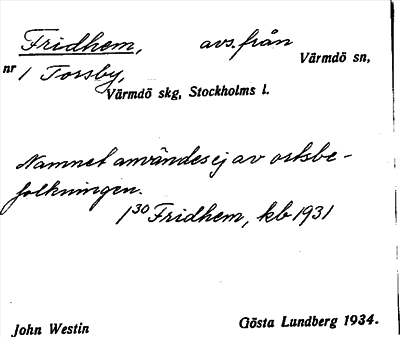 Fridhem, avs. från Värmdö sn,
nr 1 Torsby,
Värmdö skg, Stockholms l.
Namnet användes ej av ortsbe-
folkningen.
1³⁰ Fridhem, kb 1931
John Westin Gösta Lundberg 1934.